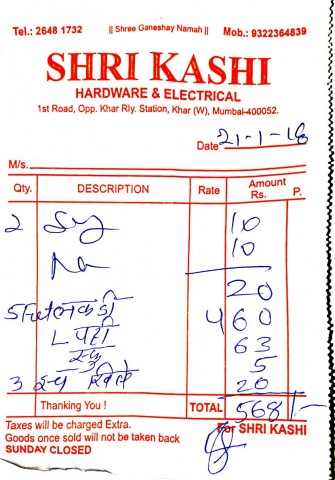 Tel.: 2648 1732 || Shree Ganeshay Namah || Mob.: 9322364839
SHRI KASHI
HARDWARE & ELECTRICAL
1st Road, Opp. Khar Rly. Station, Khar (W), Mumbai-400052.
Date 21-1-18
M/s.
Qty. DESCRIPTION Rate Amount Rs. P.
2 10
10
20
5 460
L पट्टी 63
5
3 20
Thanking You ! TOTAL 568/-
Taxes will be charged Extra. For SHRI KASHI
Goods once sold will not be taken back
SUNDAY CLOSED